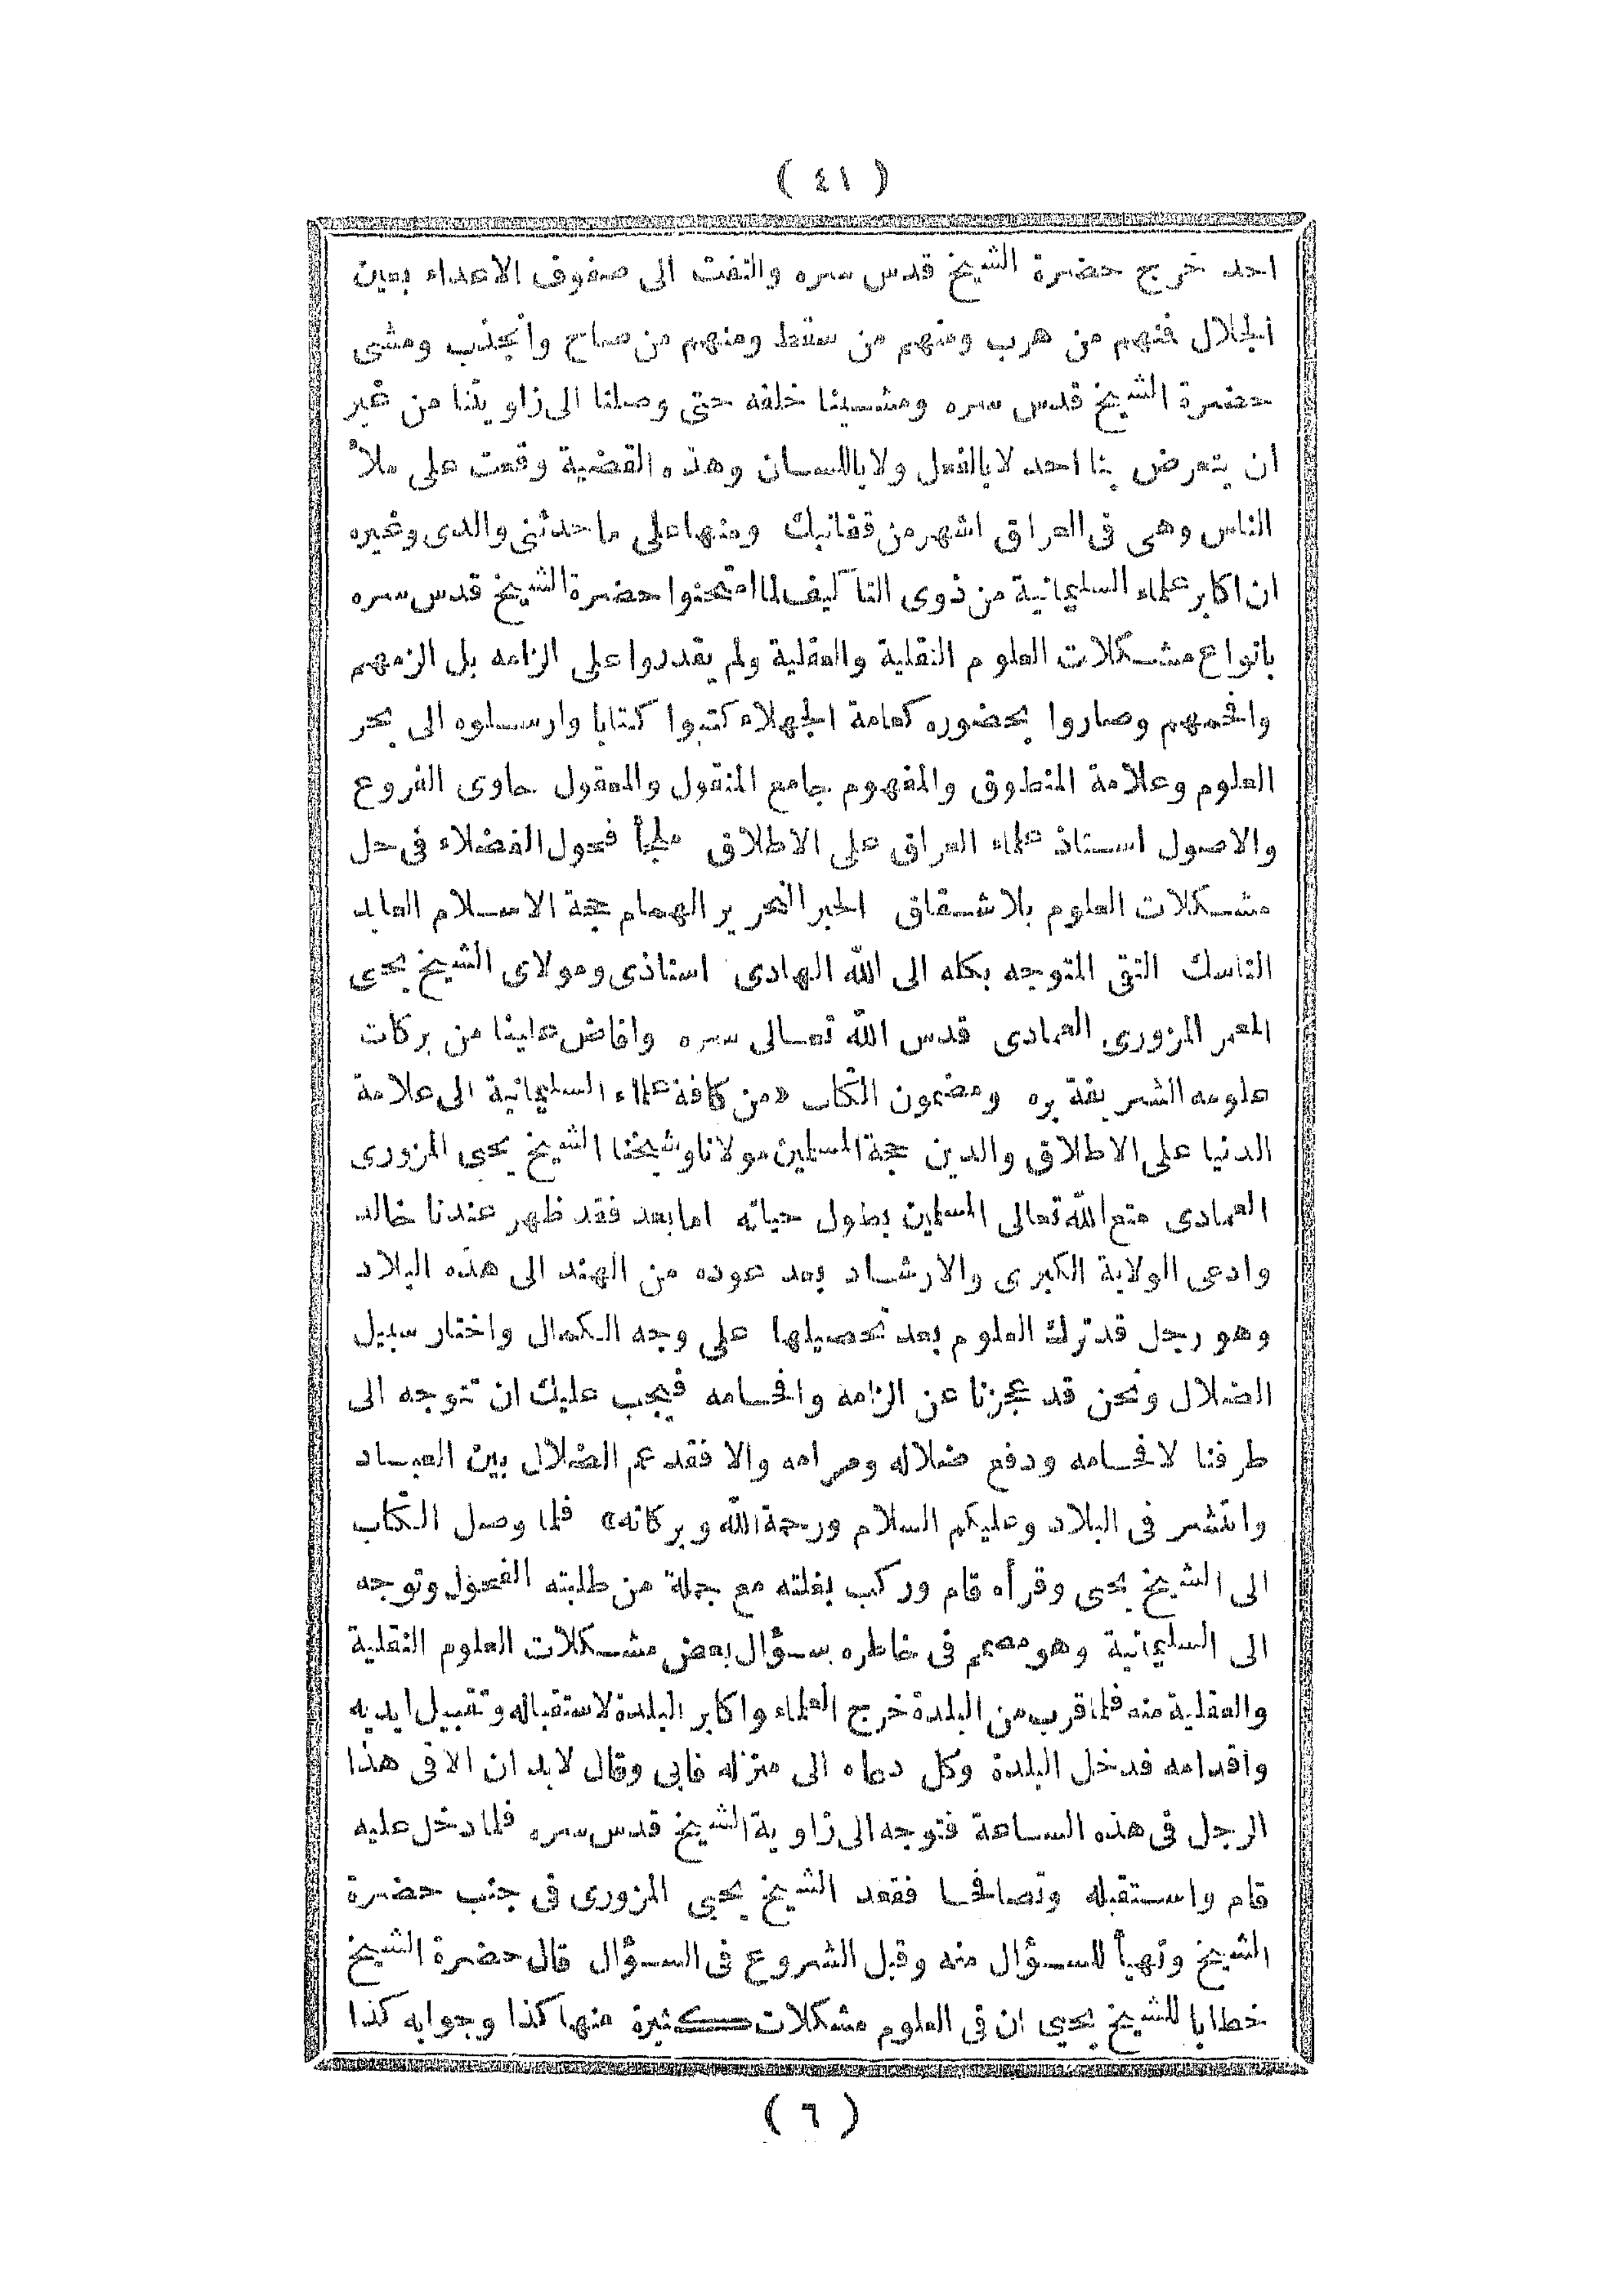 ( ٤١ )
احد خرج حضرة الشيخ قدس سره والتفت الى صفوف الاعداء بعين
الجلال فمنهم من هرب ومنهم من سقط ومنهم من صاح وانجذب ومشى
حضرة الشيخ قدس سره ومشينا خلفه حتى وصلنا الى زاويتنا من غير
ان يتعرض بنا احد لا بالفعل ولا باللسان وهذه القضية وقعت على ملأ
الناس وهى فى العراق اشهر من قفانبك ومنها على ما حدثنى والدى وغيره
ان اكابر علماء السليمانية من ذوى التآليف لما امتحنوا حضرة الشيخ قدس سره
بانواع مشكلات العلوم النقلية والعقلية ولم يقدروا على الزامه بل الزمهم
وافحمهم وصاروا بحضوره كعامة الجهلاء كتبوا كتابا وارسلوه الى بحر
العلوم وعلامة المنطوق والمفهوم جامع المنقول والمعقول حاوى الفروع
والاصول استاذ علماء العراق على الاطلاق ملجأ فحول الفضلاء فى حل
مشكلات العلوم بلا شقاق الحبر النحرير الهمام حجة الاسلام العابد
الناسك التقى المتوجه بكله الى الله الهادى استاذى ومولاى الشيخ يحيى
المعمر المزورى العمادى قدس الله تعالى سره وافاض علينا من بركات
علومه الشريفة بره ومضمون الكتاب «من كافة علماء السليمانية الى علامة
الدنيا على الاطلاق والدين حجة المسلمين مولانا وشيخنا الشيخ يحيى المزورى
العمادى متع الله تعالى المسلمين بطول حياته اما بعد فقد ظهر عندنا خالد
وادعى الولاية الكبرى والارشاد بعد عوده من الهند الى هذه البلاد
وهو رجل قد ترك العلوم بعد تحصيلها على وجه الكمال واختار سبيل
الضلال ونحن قد عجزنا عن الزامه وافحامه فيجب عليك ان تتوجه الى
طرفنا لافحامه ودفع ضلاله ومرامه والا فقد عم الضلال بين العباد
وانتشر فى البلاد وعليكم السلام ورحمة الله وبركاته» فلما وصل الكتاب
الى الشيخ يحيى وقرأه قام وركب بغلته مع جملة من طلبته الفحول وتوجه
الى السليمانية وهو مصمم فى خاطره سؤال بعض مشكلات العلوم النقلية
والعقلية منه فلما قرب من البلدة خرج العلماء واكابر البلدة لاستقباله وتقبيل ايديه
واقدامه فدخل البلدة وكل دعاه الى منزله فابى وقال لابد ان الاقى هذا
الرجل فى هذه الساعة فتوجه الى زاوية الشيخ قدس سره فلما دخل عليه
قام واستقبله وتصافحا فقعد الشيخ يحيى المزورى فى جنب حضرة
الشيخ وتهيأ للسؤال منه وقبل الشروع فى السؤال قال حضرة الشيخ
خطابا للشيخ يحيى ان فى العلوم مشكلات كثيرة منها كذا وجوابه كذا
( ٦ )